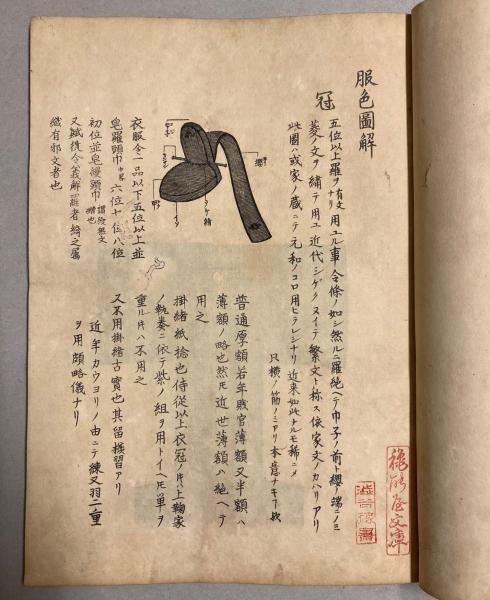 服色圖解
冠
五位以上羅ヲ有文ナリ用ユル事令條ノ如シ然ルニ羅絶ヘテ巾子ノ前ト纓ノ端ニノミ
菱ノ文ヲ繡テ用エ近代シゲクヌイテ繁文ト称ス依家文ノカハリアリ
此圖ハ或家ノ蔵ニテ元和ノコロ用ヒラレシナリ近来如此ナルモ稀ニメ
只横ノ筋ノミアリ本意ナキヿ歟
纓
衣服令一品以下五位以上並
皂羅頭巾 六位 八位
初位並皂縵頭巾 謂縵無文繒也
又賦役令義解 羅者綺之属
織有邪文者也
普通厚額若年貶官薄額又半額ハ
薄額ノ略也然㐧近世薄額ハ絶ヘテ
用之
掛緒紙捻也侍従以上衣冠ノ片ハ上鞠家
ノ執奏ニ依テ紫ノ組ヲ用トイヘ㐧単ヲ
重ル片ハ不用之
又不用掛緒古實也其留様習アリ
近年カウヨリノ由ニテ練又羽二重
ヲ用頗略儀ナリ
文庫